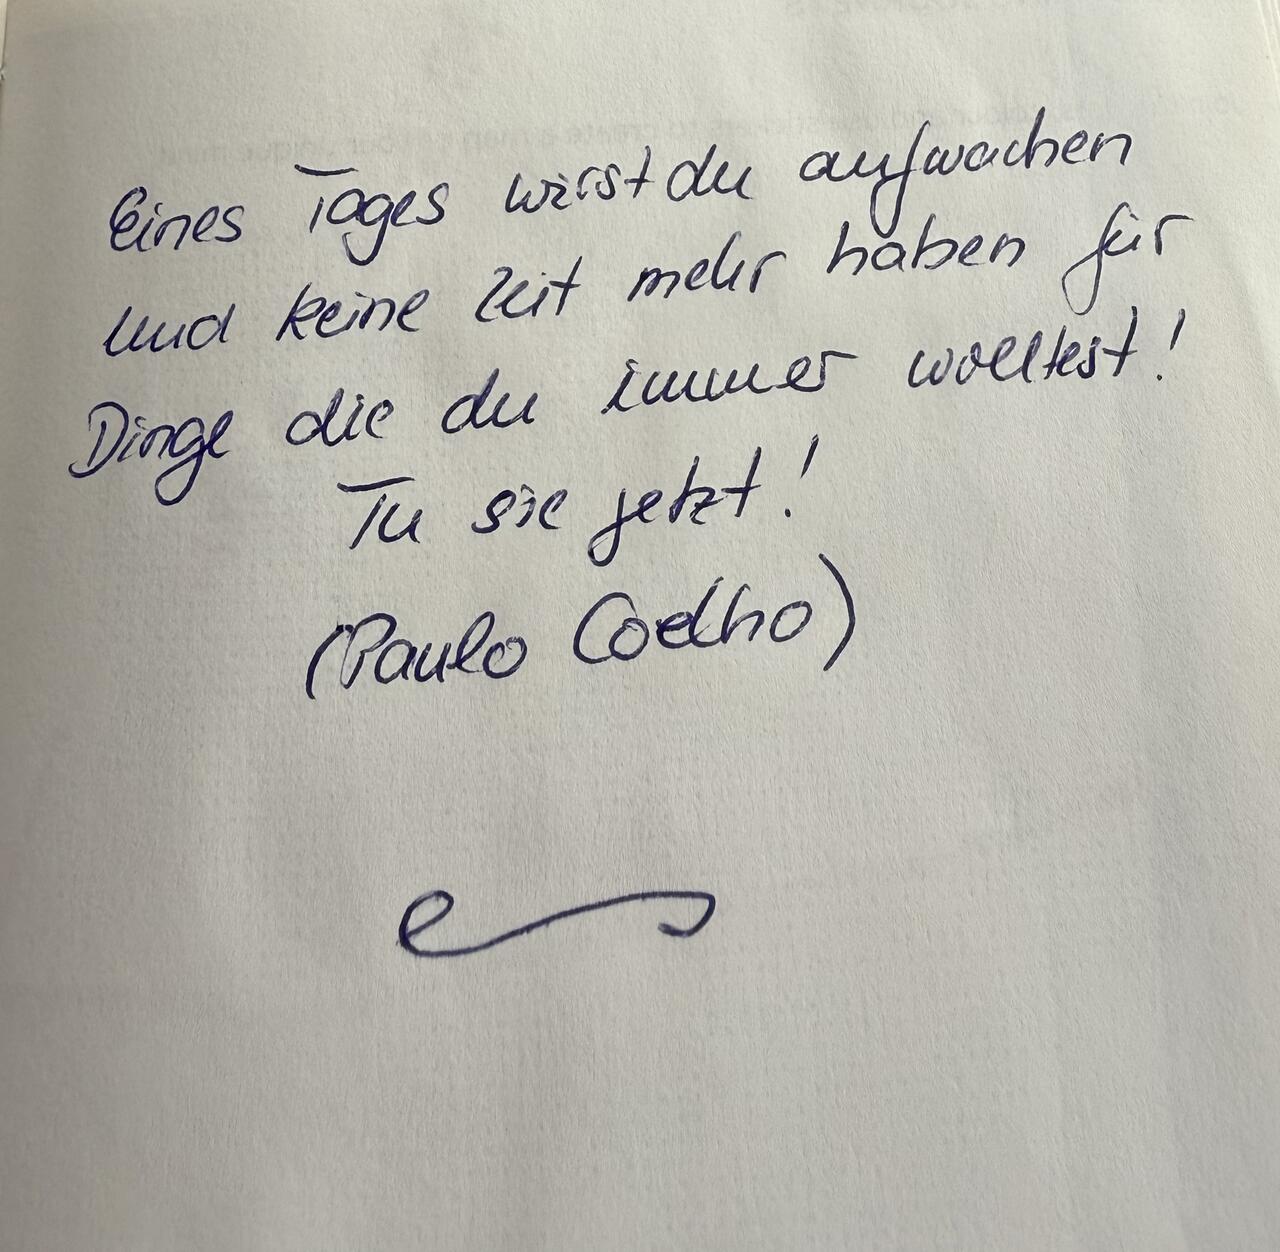 Eines Tages wirst du aufwachen
und keine Zeit mehr haben für
Dinge die du immer wolltest!
Tu sie jetzt!
(Paulo Coelho)